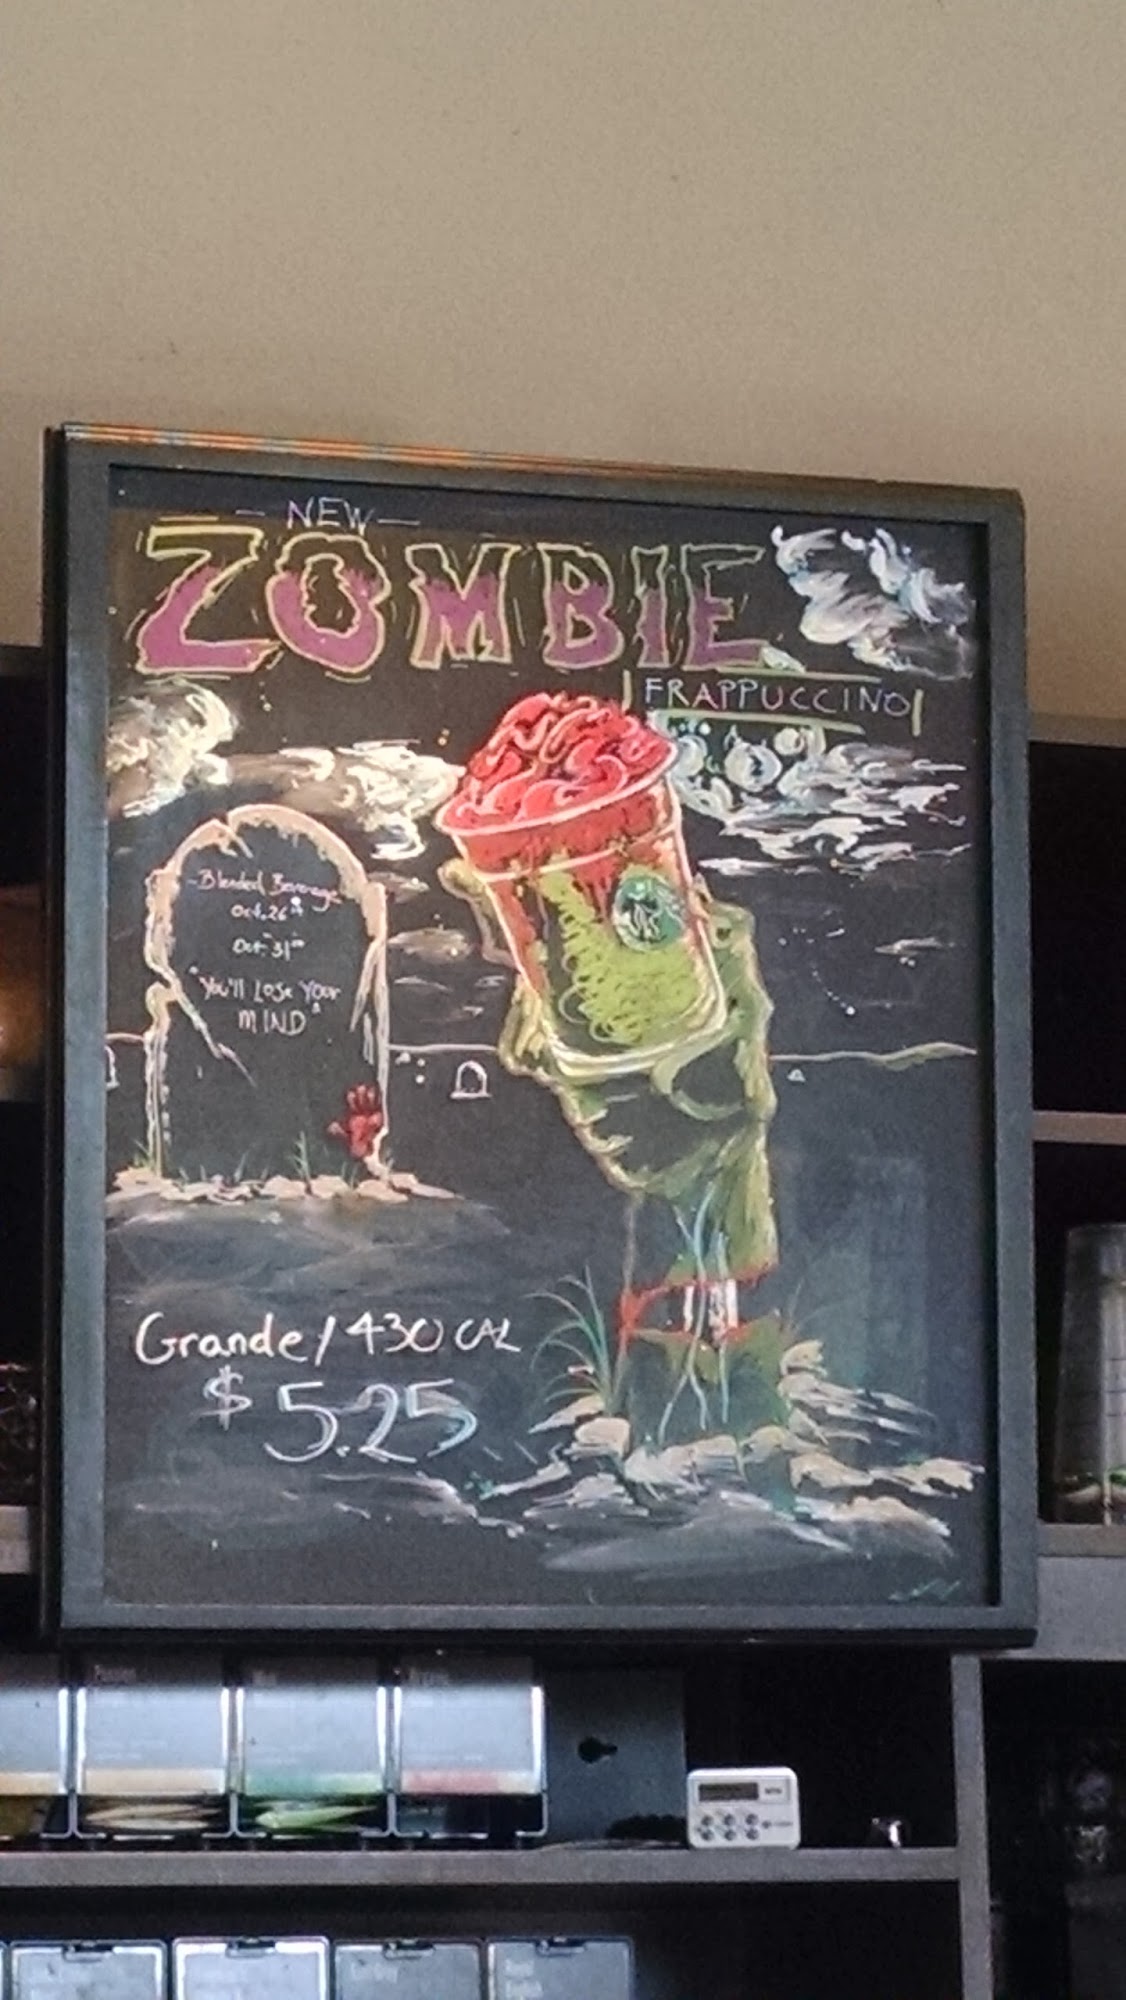 - NEW -
ZOMBIE
FRAPPUCCINO
-Blended Beverage
Oct. 26th
Oct. 31st
"You'll Lose Your
MIND"
Grande / 430 CAL
$ 5.25